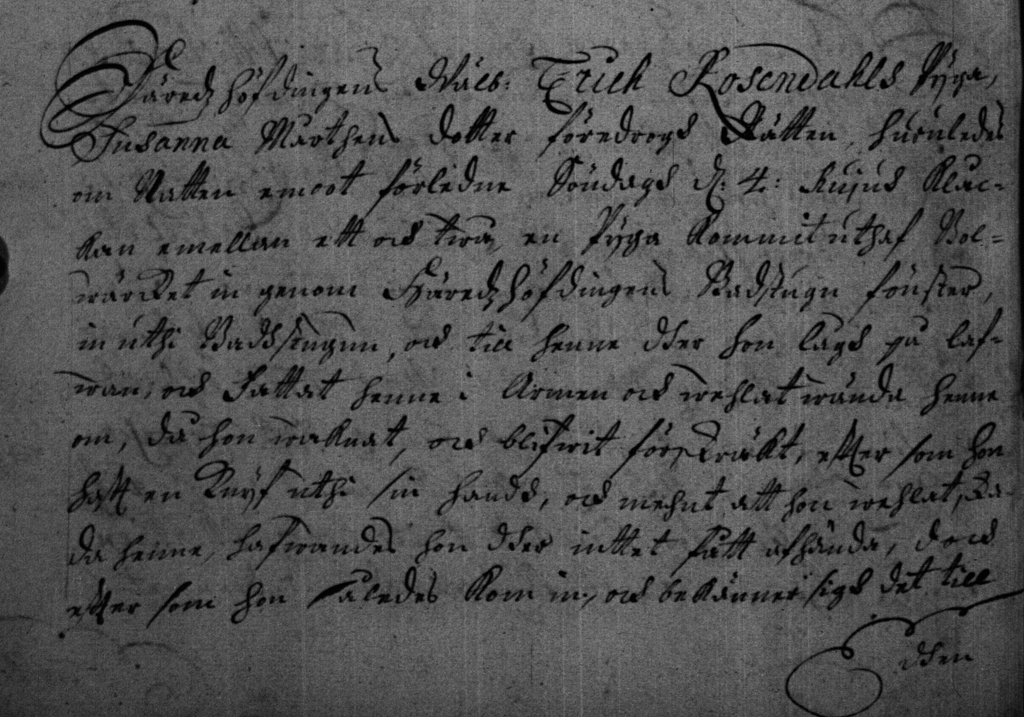 Häredzhöfdingens Wäls: Erich Rosendahls Pyga,
Susanna Marthens dotter föredrogs Rätten, huruledes
om Natten emoot förledne Söndags d: 4: hujus Kloc-
kan emellan ett och twå, en Pyga kommit uthaf Bol-
wärcket in genom Häredzhöfdingens Badstugu fönster,
in uthi Badstugun, och till henne der hon lågs på laf-
wan, och fattat henne i Armen och wehlat wända henne
om, då hon waknat, och blifwit förskräkt, efter som hon
haft en Knyf uthi sin hand, och mehnt att hon wehlat ska-
da henne, hafwandes hon der inttet fått afhända, doch
efter som hon således kom in, och bekänner sigh det till
den